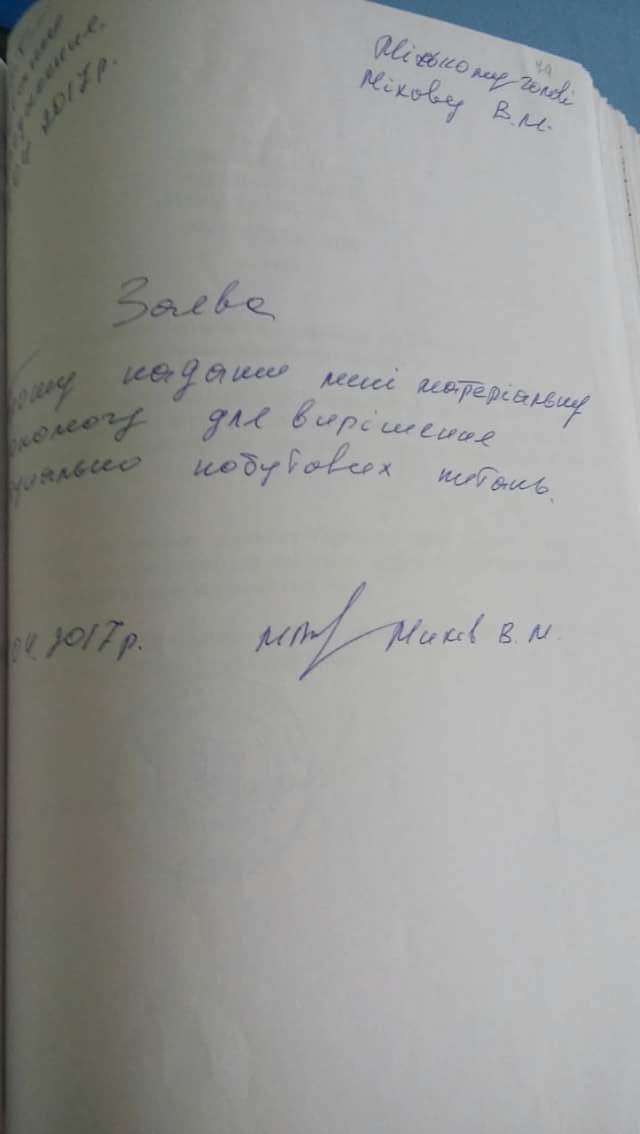 2017р.
Міському голові
Міхову В.М.
Заява
надати мені матеріальну
для вирішення
побутових питань.
04.2017р.
Міхов В.М.